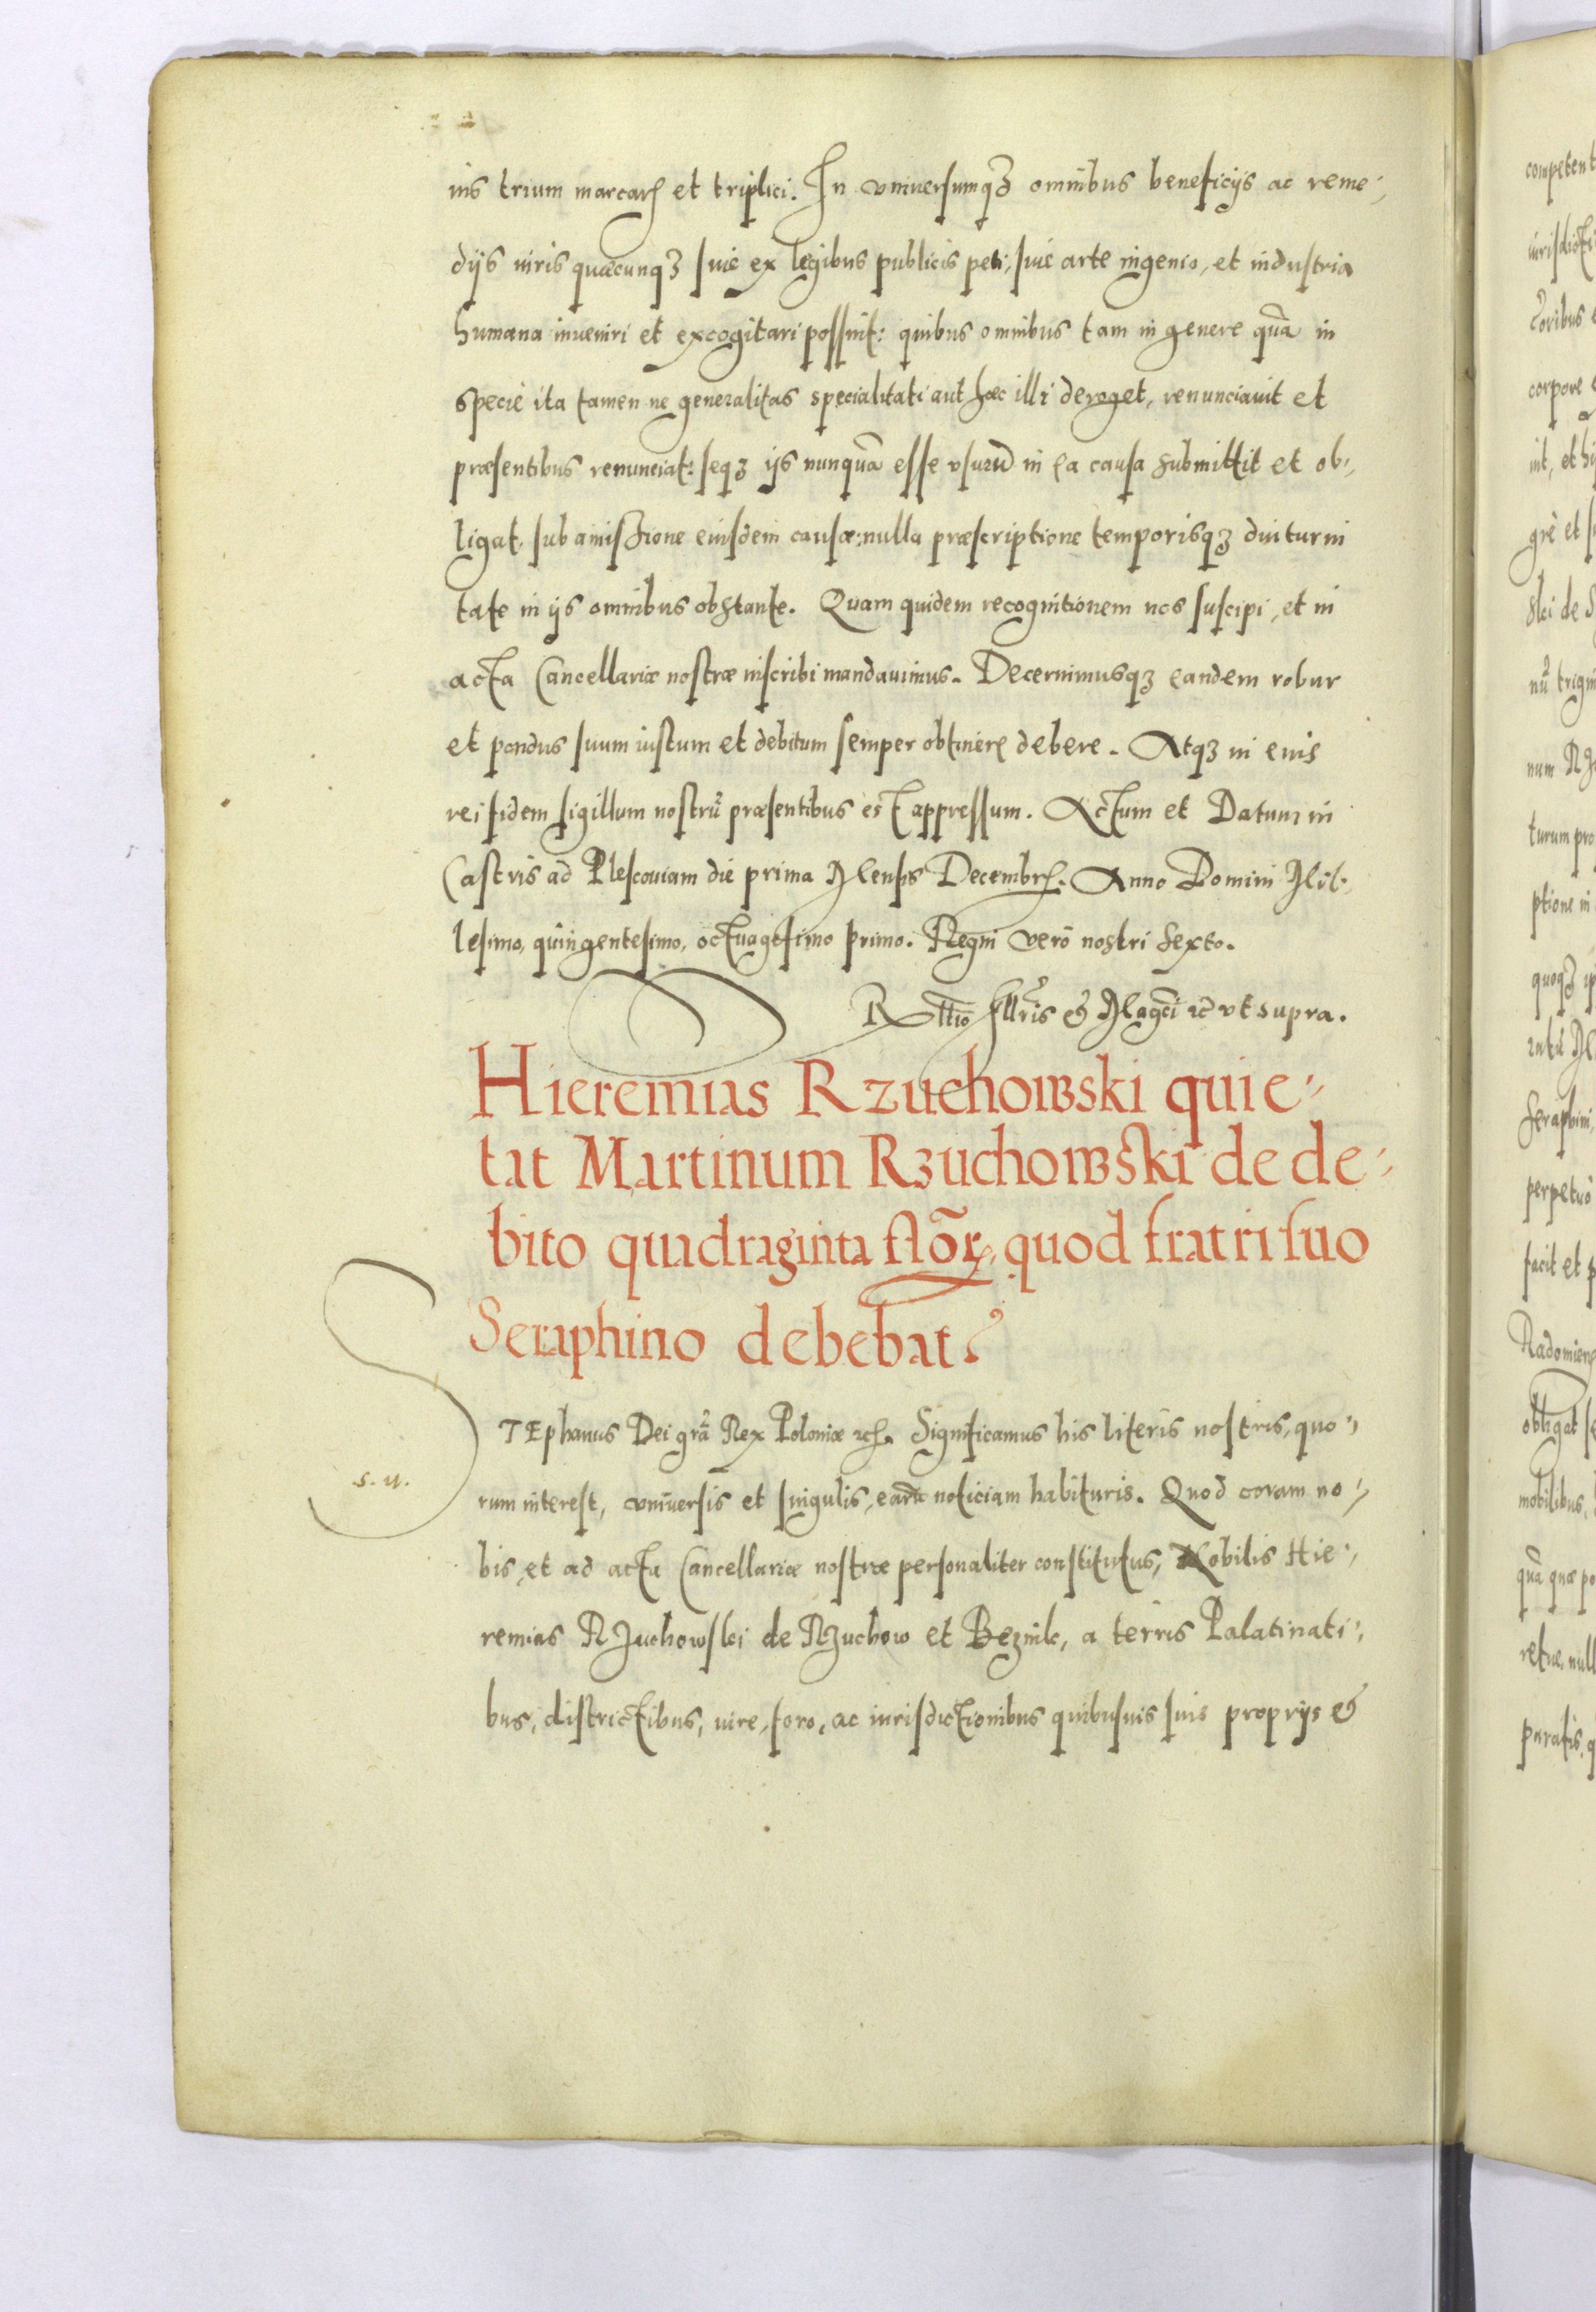 nis trium marcarꝝ et triplici. In vniuersumqꝫ omnibus beneficijs ac reme-
dijs iuris quæcunqꝫ siue ex legibus publicis peti, siue arte ingenio, et industria
humana inueniri et excogitari possint: quibus omnibus tam in genere quā in
specie ita tamen ne generalitas specialitati aut hæc illi deroget, renunciauit et
præsentibus renunciat: seqꝫ ijs nunquā esse vsurū in ea causa submittit et ob-
ligat, sub amissione eiusdem causæ: nulla præscriptione temporisqꝫ diuturni
tate in ijs omnibus obstante. Quam quidem recognitionem nos suscipi, et in
acta Cancellariæ nostræ inscribi mandauimus. Decernimusqꝫ eandem robur
et pondus suum iustum et debitum semper obtinere debere. Atqꝫ in eius
rei fidem sigillum nostrū præsentibus est appressum. Actum et Datum in
Castris ad Plescouiam die prima Mensis Decembrꝭ. Anno Domini Mil-
lesimo, quingentesimo, octuagesimo primo. Regni verò nostri sexto.
Rttio Illris & Magci ꝛc̄ vt supra.
Hieremias Rzuchowski quie-
tat Martinum Rzuchowski de de-
bito quadraginta flōrꝭ, quod fratri suo
Seraphino debebat.
STEphanus Dei grā Rex Poloniæ ꝛcꝭ. Significamus his literis nostris, quo-
rum interest, vniuersis et singulis, earū noticiam habituris. Quod coram no-
bis, et ad acta Cancellariæ nostræ personaliter constitutus, Nobilis Hie-
remias Rzuchowski de Rzuchow et Beznik, a terris Palatinati-
bus, districtibus, iure, foro, ac iurisdictionibus quibusuis suis proprijs &
s. u.
competent
iurisdicti
corpore
gre et
num
turum pro
ptione in
quoqꝫ
Seraphini,
perpetuò
facit et
Radomien
obligat
mobilibus,
paratis,